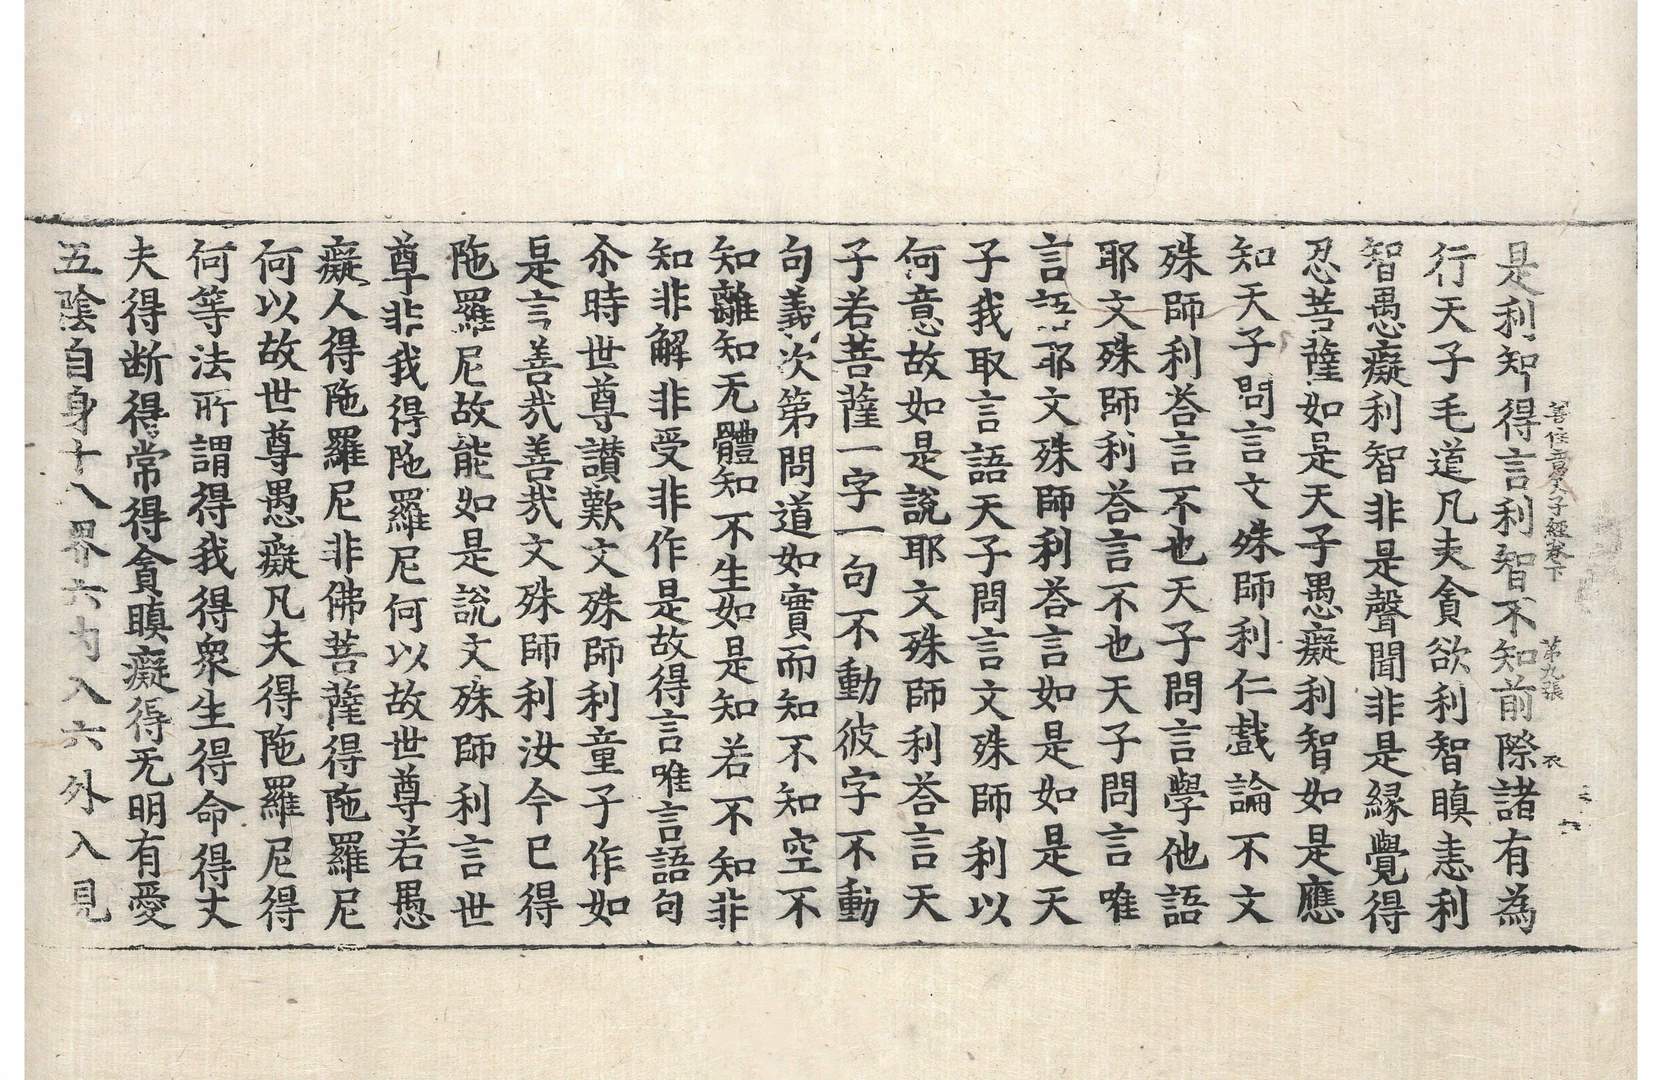 善住意天子經卷下　第九張　衣
是利知得言利智不知前際諸有為
行天子毛道凡夫貪欲利智瞋恚利
智愚癡利智非是聲聞非是緣覺得
忍菩薩如是天子愚癡利智如是應
知天子問言文殊師利仁戲論不文
殊師利荅言不也天子問言學他語
耶文殊師利荅言不也天子問言唯
言語耶文殊師利荅言如是如是天
子我取言語天子問言文殊師利以
何意故如是說耶文殊師利荅言天
子若菩薩一字一句不動彼字不動
句義次第問道如實而知不知空不
知離知无體知不生如是知若不知非
知非解非受非作是故得言唯言語句
尒時世尊讃歎文殊師利童子作如
是言善㢤善㢤文殊師利汝今已得
陁羅尼故能如是說文殊師利言世
尊非我得陁羅尼何以故世尊若愚
癡人得陁羅尼非佛菩薩得陁羅尼
何以故世尊愚癡凡夫得陁羅尼得
何等法所謂得我得衆生得命得丈
夫得断得常得貪瞋癡得无明有愛
五陰自身十八界六内入六外入見